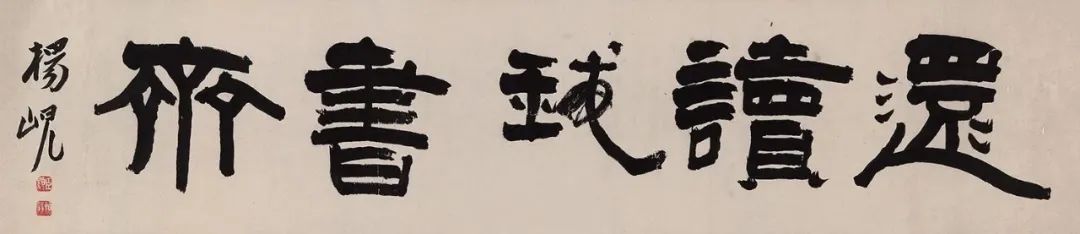 還讀我書齋
楊峴